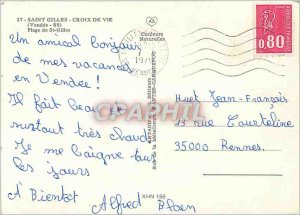 57 - SAINT GILLES - CROIX DE VIE
(Vendée - 85)
Plage de St-Gilles
Un amical bonjour
de mes vacances
en Vendée!
Il fait beau et
surtout très chaud
Je me baigne tous
les jours
A Bientôt Alfred
Couleurs
Naturelles
0,80
Huet Jean-François
13 rue
35000 Rennes.
XHN 156
CPARAMA.COM